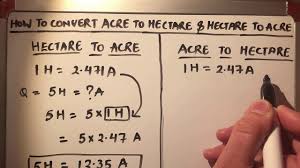 HOW TO CONVERT ACRE TO HECTARE & HECTARE TO ACRE
HECTARE TO ACRE
1H = 2.471A
Q = 5H = ? A
5H = 5 × 1H
= 5 × 2.47 A
5H = 12.35 A
ACRE TO HECTARE
1H = 2.47A